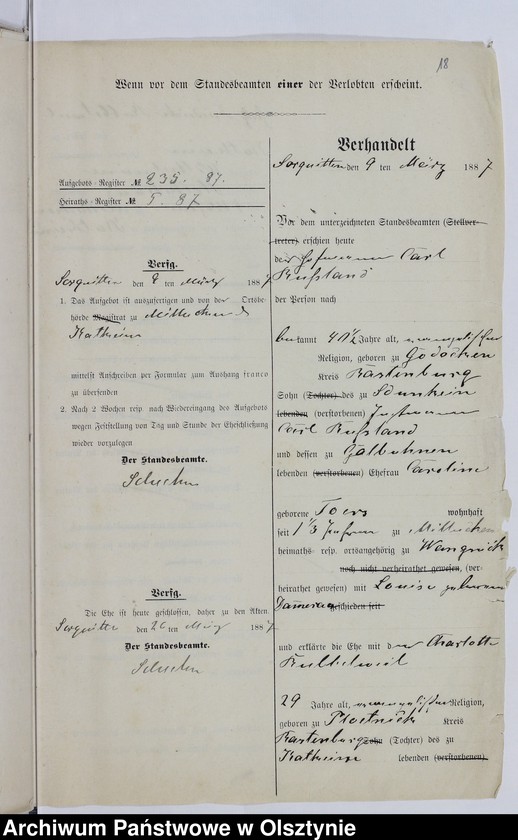 18
Wenn vor dem Standesbeamten einer der Verlobten erscheint.
Aufgebots-Register № 235. 87.
Heiraths-Register № 5. 87
Verfg.
Sorquitten den 9 ten März 1887
1. Das Aufgebot ist auszufertigen und von der Ortsbe-
hörde Magistrat zu
mittelst Anschreiben per Formular zum Aushang franco
zu übersenden
2. Nach 2 Wochen resp. nach Wiedereingang des Aufgebots
wegen Feststellung von Tag und Stunde der Eheschließung
wieder vorzulegen
Der Standesbeamte.
Verfg.
Die Ehe ist heute geschlossen, daher zu den Akten.
Sorquitten den 26 ten März 1887
Der Standesbeamte.
Verhandelt
Sorquitten den 9 ten März 1887
Vor dem unterzeichneten Standesbeamten (Stellver-
treter) erschien heute
der Hofmann Carl
Rußland
der Person nach
bekannt 41½ Jahre alt, evangelischer
Religion, geboren zu
Kreis Rastenburg
Sohn (Tochter) des zu
lebenden (verstorbenen) Instmann
Carl Rußland
und dessen zu
lebenden (verstorbenen) Ehefrau Caroline
geborene wohnhaft
seit 1⅓ Jahren zu
heimaths- resp. ortsangehörig zu
noch nicht verheirathet gewesen, (ver-
heirathet gewesen) mit Louise geborenen
geschieden seit
und erklärte die Ehe mit der Charlotte
29 Jahre alt, evangelischer Religion,
geboren zu Kreis
Rastenburg Sohn (Tochter) des zu
lebenden (verstorbenen)
Archiwum Państwowe w Olsztynie